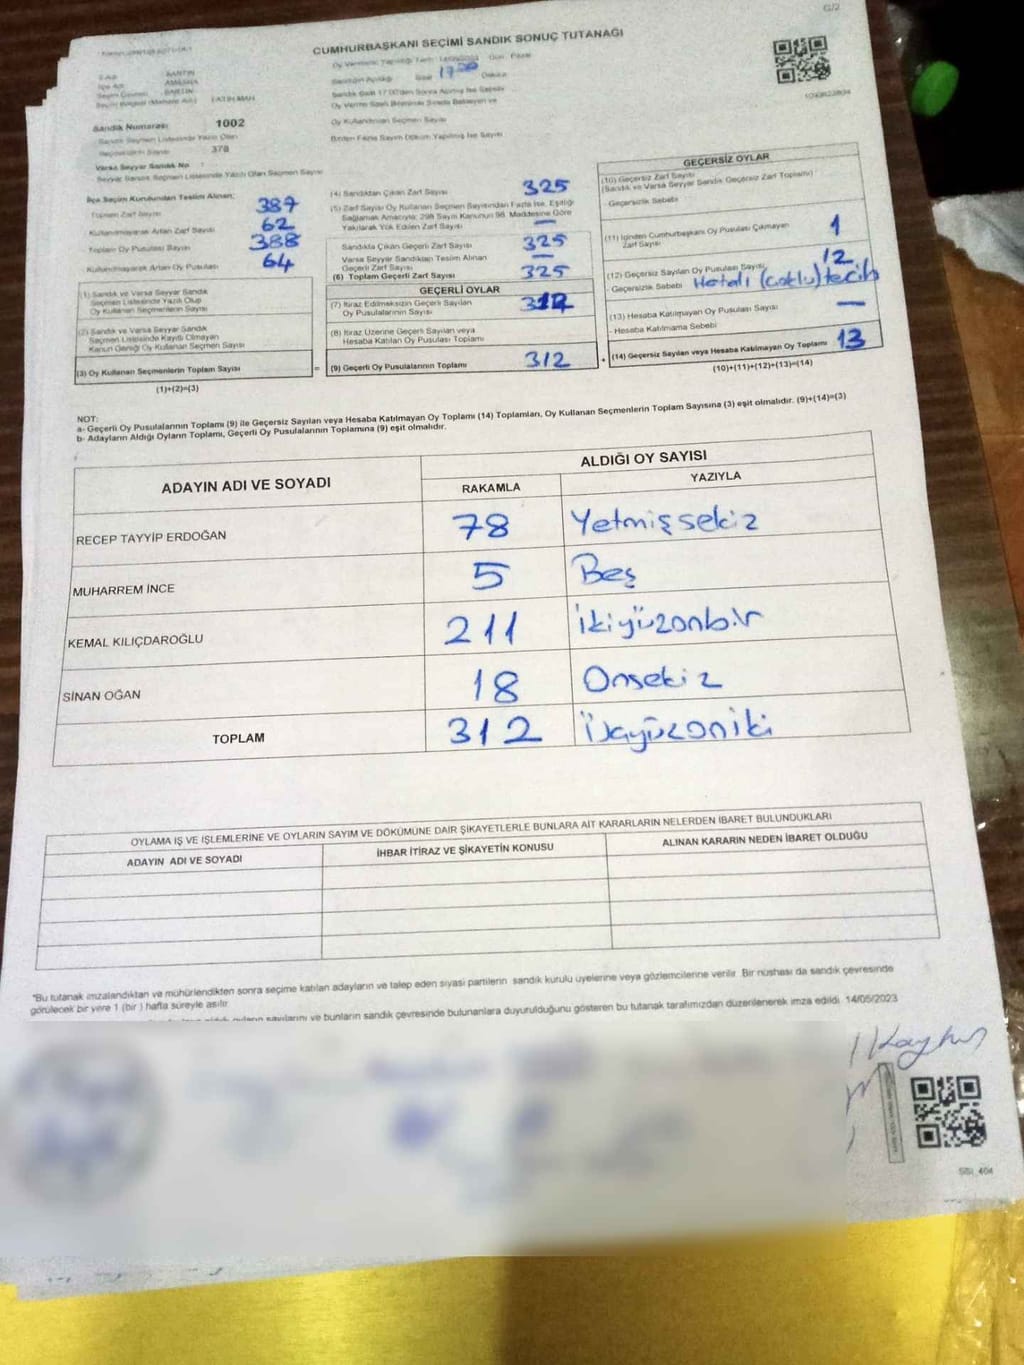 G/2
CUMHURBAŞKANI SEÇİMİ SANDIK SONUÇ TUTANAĞI
Oy Verme
17
BARTIN
AMASRA
BARTIN
FATİH MAH
Sandık Numarası 1002
378
Varsa Seyyar Sandık No :
Seyyar Sandık Seçmen Listesinde Yazılı Olan Seçmen Sayısı
Sandık Saat 17:00'den Sonra Açılmış İse Sebebi
Oy Kullandırılan Seçmen Sayısı
Birden Fazla Sayım Döküm Yapılmış İse Sayısı
İlçe Seçim Kurulundan Teslim Alınan;
Toplam Zarf Sayısı 387
Kullanılmayarak Artan Zarf Sayısı 62
Toplam Oy Pusulası Sayısı 388
Kullanılmayarak Artan Oy Pusulası 64
(1) Sandık ve Varsa Seyyar Sandık
Seçmen Listesinde Yazılı Olup
Oy Kullanan Seçmenlerin Sayısı
(2) Sandık ve Varsa Seyyar Sandık
Seçmen Listesinde Kayıtlı Olmayan
Kanun Gereği Oy Kullanan Seçmen Sayısı
(3) Oy Kullanan Seçmenlerin Toplam Sayısı
(1)+(2)=(3)
(4) Sandıktan Çıkan Zarf Sayısı 325
(5) Zarf Sayısı Oy Kullanan Seçmen Sayısından Fazla İse, Eşitliği
Sağlamak Amacıyla; 298 Sayılı Kanunun 98. Maddesine Göre
Yakılarak Yok Edilen Zarf Sayısı —
Sandıkta Çıkan Geçerli Zarf Sayısı 325
Varsa Seyyar Sandıktan Teslim Alınan
Geçerli Zarf Sayısı —
(6) Toplam Geçerli Zarf Sayısı 325
GEÇERLİ OYLAR
(7) İtiraz Edilmeksizin Geçerli Sayılan
Oy Pusulalarının Sayısı 312
(8) İtiraz Üzerine Geçerli Sayılan veya
Hesaba Katılan Oy Pusulası Toplamı
= (9) Geçerli Oy Pusulalarının Toplamı 312
GEÇERSİZ OYLAR
(10) Geçersiz Zarf Sayısı
(Sandık ve Varsa Seyyar Sandık Geçersiz Zarf Toplamı)
- Geçersizlik Sebebi
(11) İçinden Cumhurbaşkanı Oy Pusulası Çıkmayan
Zarf Sayısı 1
(12) Geçersiz Sayılan Oy Pusulası Sayısı 12
- Geçersizlik Sebebi Hatalı (çoklu) tercih
(13) Hesaba Katılmayan Oy Pusulası Sayısı —
- Hesaba Katılmama Sebebi
+ (14) Geçersiz Sayılan veya Hesaba Katılmayan Oy Toplamı 13
(10)+(11)+(12)+(13)=(14)
NOT:
a- Geçerli Oy Pusulalarının Toplamı (9) ile Geçersiz Sayılan veya Hesaba Katılmayan Oy Toplamı (14) Toplamları, Oy Kullanan Seçmenlerin Toplam Sayısına (3) eşit olmalıdır. (9)+(14)=(3)
b- Adayların Aldığı Oyların Toplamı, Geçerli Oy Pusulalarının Toplamına (9) eşit olmalıdır.
ADAYIN ADI VE SOYADI
ALDIĞI OY SAYISI
RAKAMLA YAZIYLA
RECEP TAYYİP ERDOĞAN 78 Yetmişsekiz
MUHARREM İNCE 5 Beş
KEMAL KILIÇDAROĞLU 211 İkiyüzonbir
SİNAN OĞAN 18 Onsekiz
TOPLAM 312
OYLAMA İŞ VE İŞLEMLERİNE VE OYLARIN SAYIM VE DÖKÜMÜNE DAİR ŞİKAYETLERLE BUNLARA AİT KARARLARIN NELERDEN İBARET BULUNDUKLARI
ADAYIN ADI VE SOYADI İHBAR İTİRAZ VE ŞİKAYETİN KONUSU ALINAN KARARIN NEDEN İBARET OLDUĞU
*Bu tutanak imzalandıktan ve mühürlendikten sonra seçime katılan adayların ve talep eden siyasi partilerin sandık kurulu üyelerine veya gözlemcilerine verilir. Bir nüshası da sandık çevresinde
görülecek bir yere 1 (bir) hafta süreyle asılır.
sayılarını ve bunların sandık çevresinde bulunanlara duyurulduğunu gösteren bu tutanak tarafımızdan düzenlenerek imza edildi. 14/05/2023